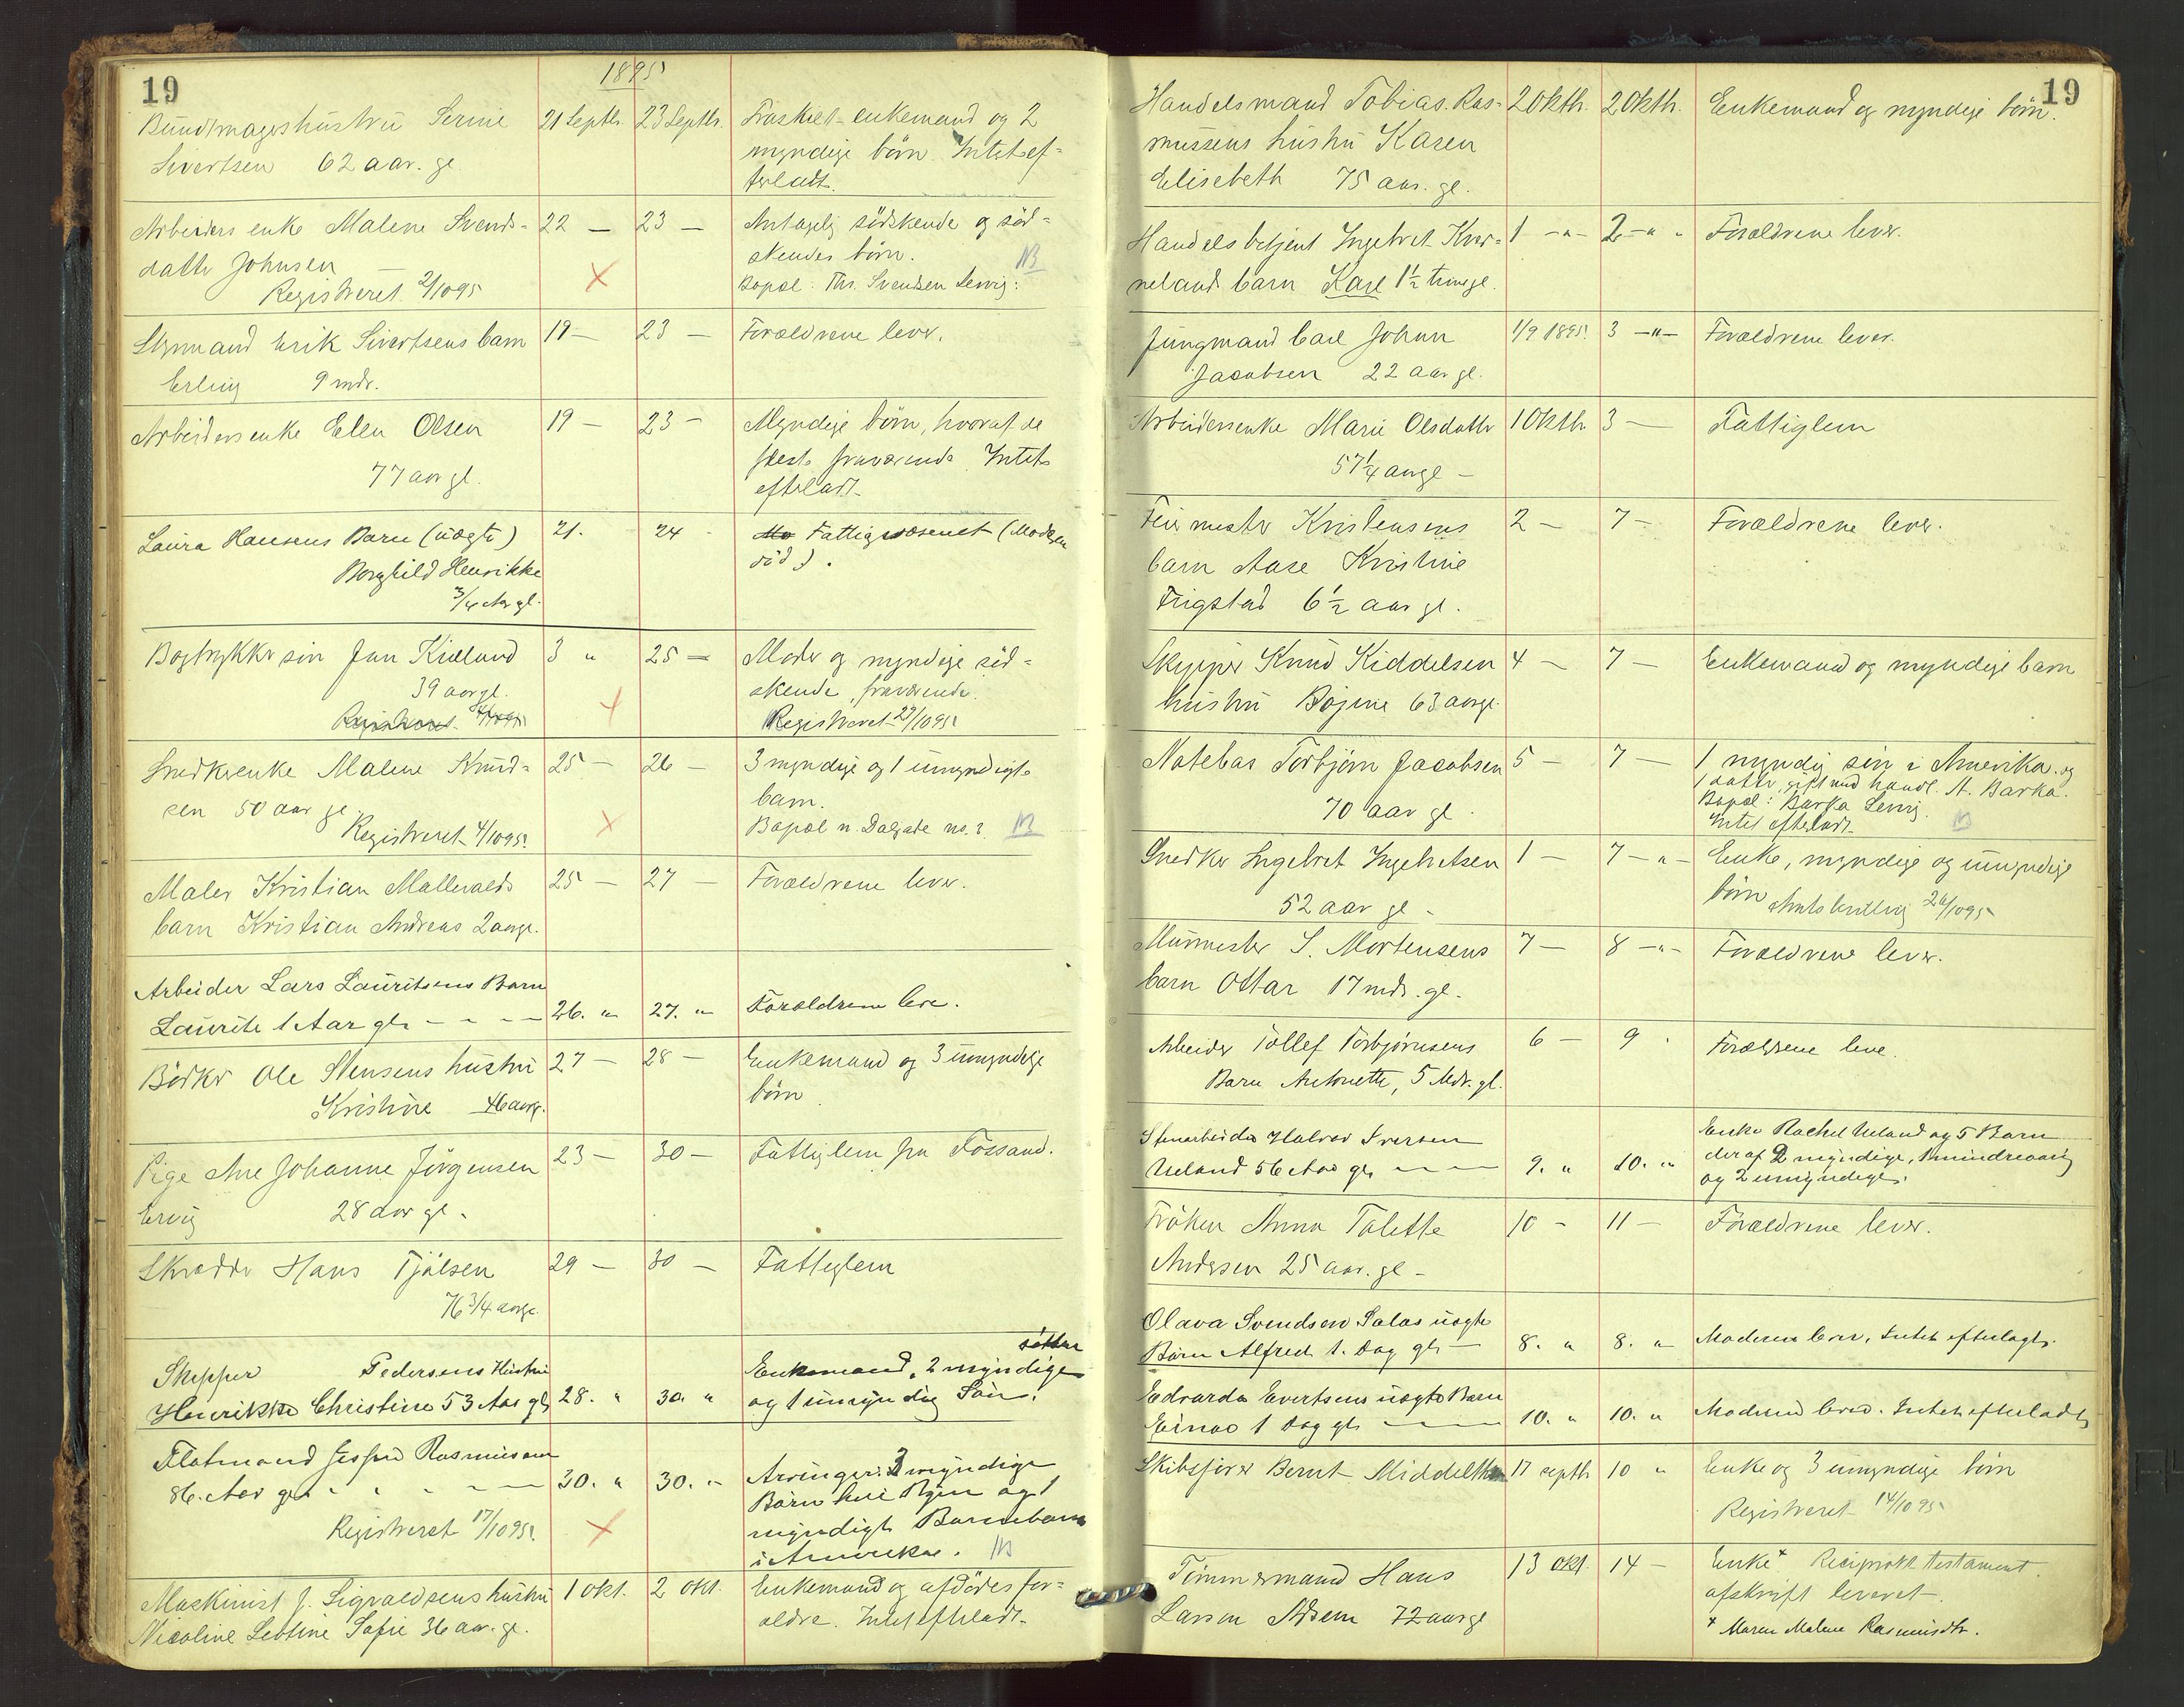 19
1895
Bundtmagershustru Serine 21 Septbr. 23 Septbr. Fraskilt enkemand og 2
Sivertsen 62 aar. gl. myndige børn. Intet ef-
terladt.
Arbeiders enke Malene Svends- 22 — 23 — Antagelig södskende og söd-
datter Johnsen skendes börn. NB
Registreret 2/10 95 Bopæl: Ths. Svendsen Lervig:
Styrmand Erik Sivertsens barn 19 — 23 — Forældrene lever.
Erling 9 mdr.
Arbeidersenke Elen Olsen 19 — 23 — Myndige börn, hvoraf de
77 aar gl. fleste fraværende. Intet
efterladt.
Laura Hansens Barn (uægte) 21. 24 Fattigvæsenet (Moderen
Borghild Henrikke död).
3/4 Aar gl.
Bogtrykker sön Jan Kielland 3 " 25 — Moder og myndige söd-
39 aar gl. skende, fraværende.
Registreret Registreret 29/10 95
Snedkerenke Malene Knud- 25 — 26 — 3 myndige og 1 umyndigt
sen 50 aar gl. barn.
Registreret 4/10 95. Bopæl n. Dalgate no. 2. NB
Maler Kristian Mallevalds 25 — 27 — Forældrene lever.
barn Kristian Andreas 2 aargl.
Arbeider Lars Lauritsens Barn
Laurits 1 Aar gl. 26. " 27. " Forældrene leve.
Bödker Ole Stensens hustru 27 — 28 — Enkemand og 3 umyndige
Kristine 46 aargl. börn
Pige Ane Johanne Jörgensen 23 — 30 — Fattiglem fra Fossand.
Ervig 28 aar gl.
Skrædder Hans Tjölsen 29 — 30 — Fattiglem
76 3/4 aargl.
Skipper Pedersens Hustru döttre
Enkemand, 2 myndige
Henrikke Christine 53 Aar gl. 28. " 30. " og 1 umyndig Sön.
Flatmand Jesper Rasmussen
86 Aar gl. 30. " 30. " Arvinger: 3 myndige
Börn her i Byen og 1
Registreret 17/10 95. myndigt Barnebarn
i Amerika. NB
Maskinist J. Sigvaldsens hustru 1 okt. 2 okt. Enkemand og afdödes for-
Nicoline Leotine Sofie 36 aar. gl. ældre. Intet efterladt.
19
Handelsmand Tobias Ras- 2 Oktbr. 2 Oktbr. Enkemand og myndige börn.
mussens hustru Karen
Elisebeth 75 aar. gl.
Handelsbetjent Ingebret Kver- 1 —"— 2 —" Forældrene lever.
nelands barn Karl 1 1/2 time gl.
Jungmand Carl Johan 1/9 1895. 3 —"— Forældrene lever.
Jacobsen 22 aar gl.
Arbeidersenke Marie Olsdatter 1 Oktbr 3 — Fattiglem
57 1/4 aargl —
Feiermester Kristensens 2 — 7 — Forældrene lever.
barn Aase Kristine
Frigstad 6 1/2 aar gl.
Skipper Knud Kiddelsen 4 — 7 — Enkemand og myndige barn
hustru Bojine 63 aargl.
Notebas Torbjörn Jacobsen 5 — 7 — 1 myndig sön i Amerika og
1 datter, gift med handl. A. Barka.
70 aar gl. Bopæl: Barka Lervig.
Intet efterladt. NB
Snedker Ingebret Ingebretsen 1 — 7 —"— Enke, myndige og umyndige
52 aar gl. börn 26/10 95
Murmester S. Mortensens 7 — 8 —"— Forældrene lever.
barn Ottar 17 mdr. gl.
Arbeider Tollef Torbjörnsens 6 — 9 Forældrene leve.
Barn Antonette, 5 Mdr. gl.
Stenarbeider Halvor Iversen Enke Rachel Ueland og 5 Barn
Ueland 56 Aar gl. 9. " 10. " deraf 2 myndige, 1 mindreaarig
og 2 umyndige.
Fröken Anna Talette 10 — 11 — Forældrene lever.
Andersen 25 aar. gl —
Olava Svendsen Salas uægte
Barn Alfred 1. Dag gl. 8. " 8. " Moderen lever. Intet efterladt.
Edvarda Evertsens uægte Barn
Einar 1 Dag gl. 10. " 10. " Moderen lever. Intet efterladt
Skibsförer Bernt Middelthon 17 septbr 10 " Enke og 3 umyndige börn
Registreret 14/10 95
Tömmermand Hans 13 okt. 14 — Enke + Reciprokt testament.
Larsen 72 aar gl afskrift leveret.
+ Maren Malene Rasmusdtr.